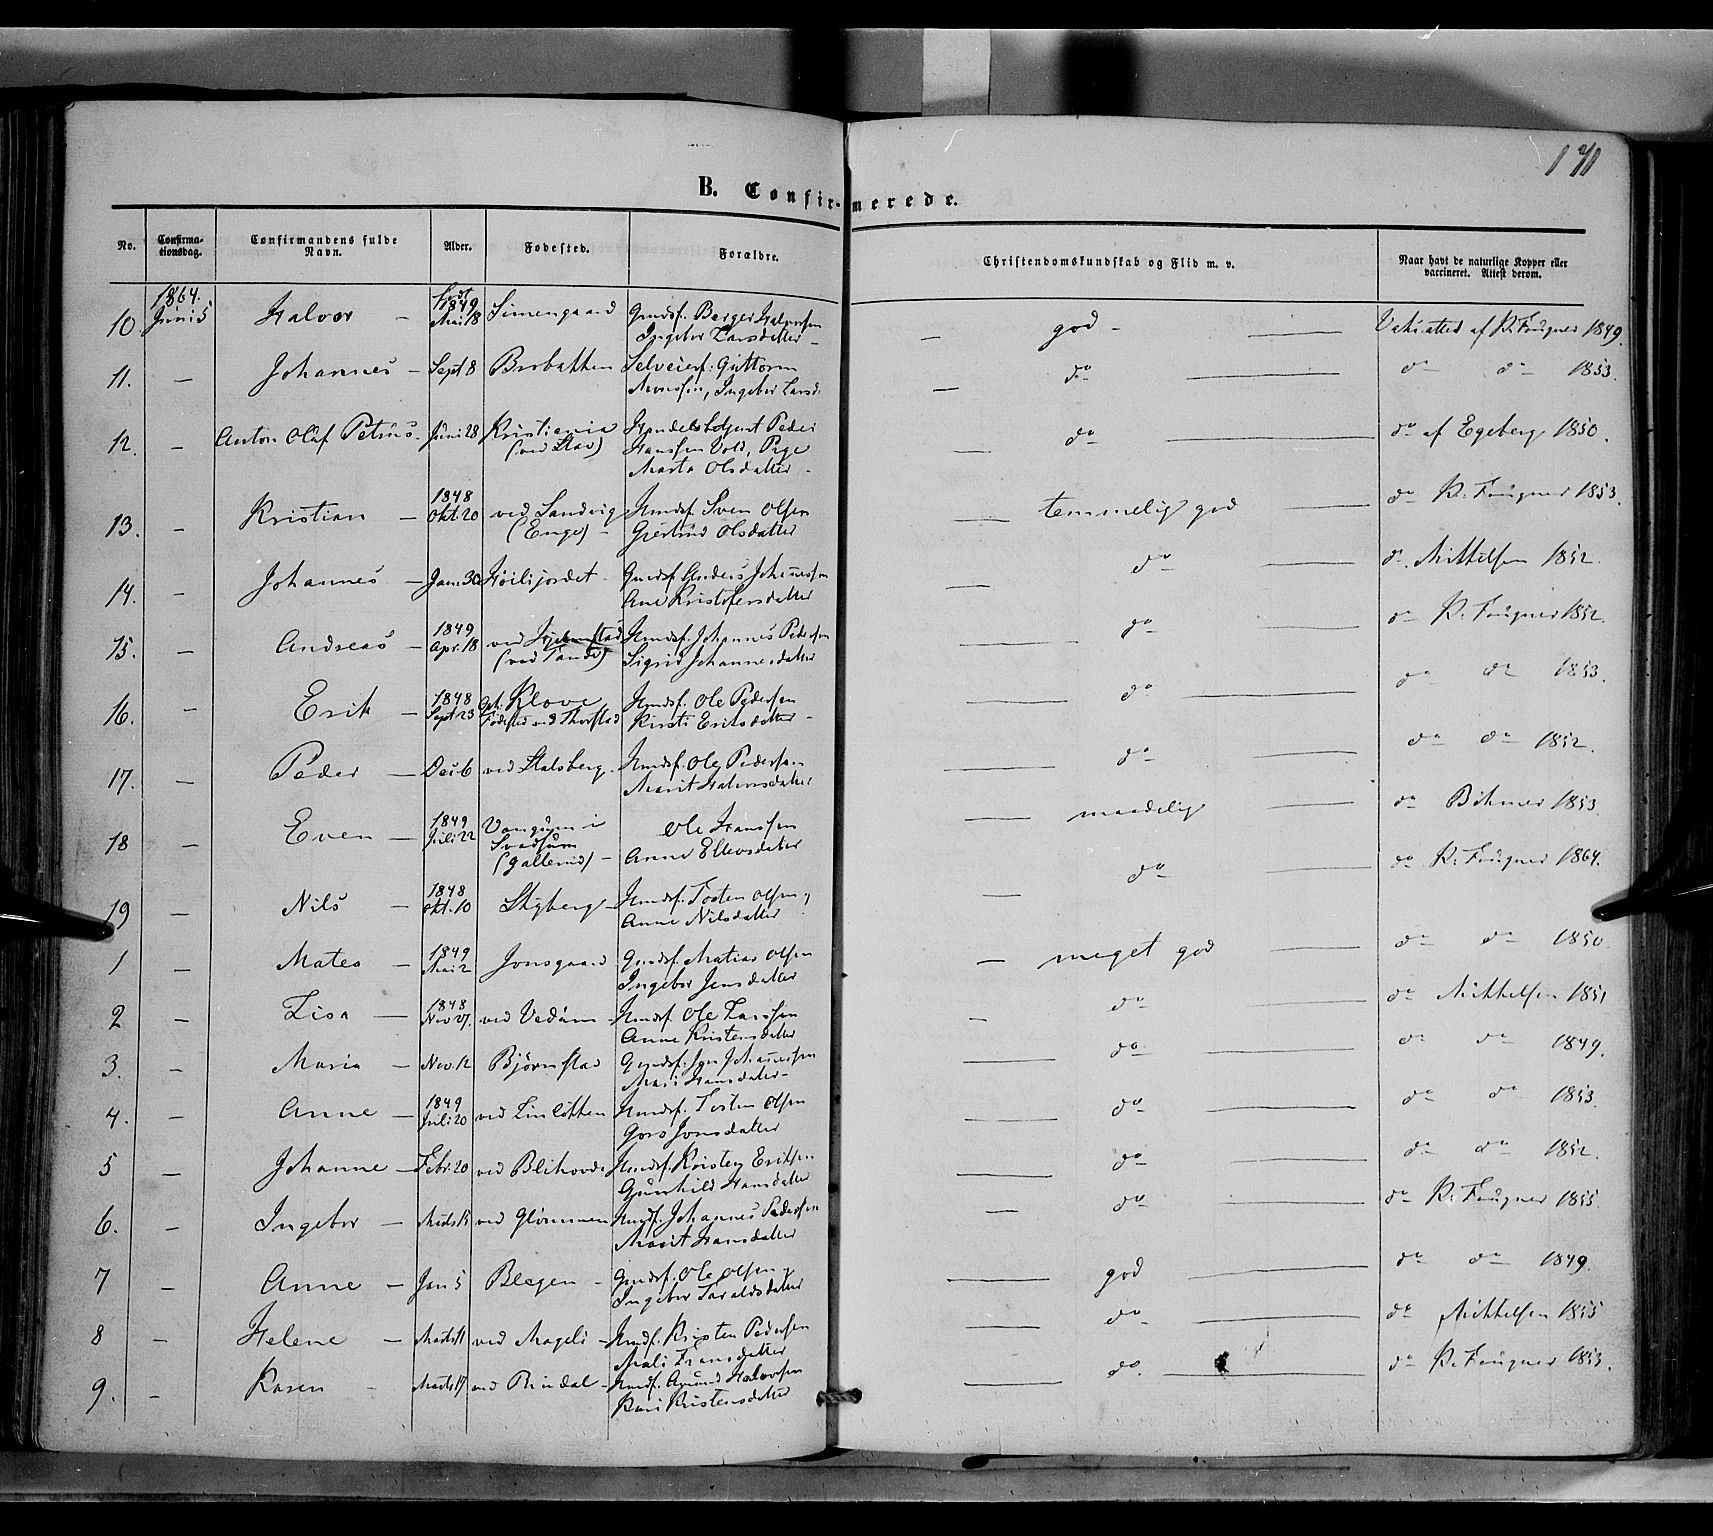 171
B. Confirmerede.
No. Confirmationsdag. Confirmandens fulde Navn. Alder. Fødested. Forældre. Christendomskundskab og Flid m. v. Naar havt de naturlige Kopper eller vaccineret. Attest derom.
10. 1864. Juni 5 Halvor — Født 1849 Mai 18 Simengaard Gmdsf. Berger Halvorsen
Ingebor Larsdatter — god — af K. Fougner 1849.
11. — Johannes — Sept 8 Brobakken Selveierf. Guttorm
Monssen, Ingebor Larsd. do do do 1853.
12. — Anton Olaf Petrus Juni 28 Kristiania Peder
Hanssen Vold, Pige
Marta Olsdatter do do af Egeberg 1850.
13. — Kristian — 1848 Okt. 20 ved Sandvig (Enge) — Hmdsf. Sven Olsen
Gjertrud Olsdatter temmelig god do K. Fougner 1853.
14. — Johannes — Jan. 30 Høilijordet Gmdsf. Anders Johannessen
Ane Kristofersdatter do do Mikkelsen 1852.
15. — Andreas — 1849 Apr. 18 ved Hmdsf. Johannes Pedersen
Sigrid Johannesdatter do do K. Fougner 1852.
16. — Erik — 1848 Sept 23 Kløve Hmdsf. Ole Pedersen
Fødested ved Thorstad Kirsti Eriksdatter — do do do 1853.
17. — Peder — Des 6 ved Stalsberg Hmdsf. Ole Pedersen
Marit Halvorsdatter do do do 1852.
18 — Even — 1849 Juli 22 Vangum i Svadsum Ole Hanssen
Anne Ellevsdatter maadelig do 1853.
19 — Nils — 1848 Okt. 10 Skyberg — Hmdsf. Tosten Olsen,
Anne Nilsdatter do do K. Fougner 1864.
1 — Matea — 1849 Mai 2 Jonsgaard Gmdsf. Matias Olsen
Ingebor Jensdatter — meget god do do 1850
2 — Lisa — 1848 Nov 27. ved Vedum — Hmdsf. Ole Larssen
Anne Kristensdatter do do Mikkelsen 1851
3. — Maria — Nov. 12 Bjørnstad Gmdsf. Johannessen
Mari Hansdatter — do do do 1849.
4. — Anne — 1849 Juli 20 ved Linløkken Hmdsf. Tosten Olsen
Goro Jonsdatter do do do 1853.
5 — Johanne — Febr. 20 ved Blikovde Hmdsf. Eriksen
Gunhild Hansdatter do do do 1852.
6. — Ingebor — ved Glømmen Hmdsf. Johannes Pedersen
Marit Hansdatter do do K. Fougner 1855.
7 — Anne — Jan 5 Blegen — Gmdsf. Ole Olsen,
Ingebor Haraldsdatter god do do 1849.
8 — Helene — ved Mageli — Hmdsf. Kristen Pedersen
Mali Fransdatter do do Mikkelsen 1855
9. — Karen — ved Rindal — Hmdsf. Amund Halvorsen
Kari Kristensdatter do. do K. Fougner 1853.